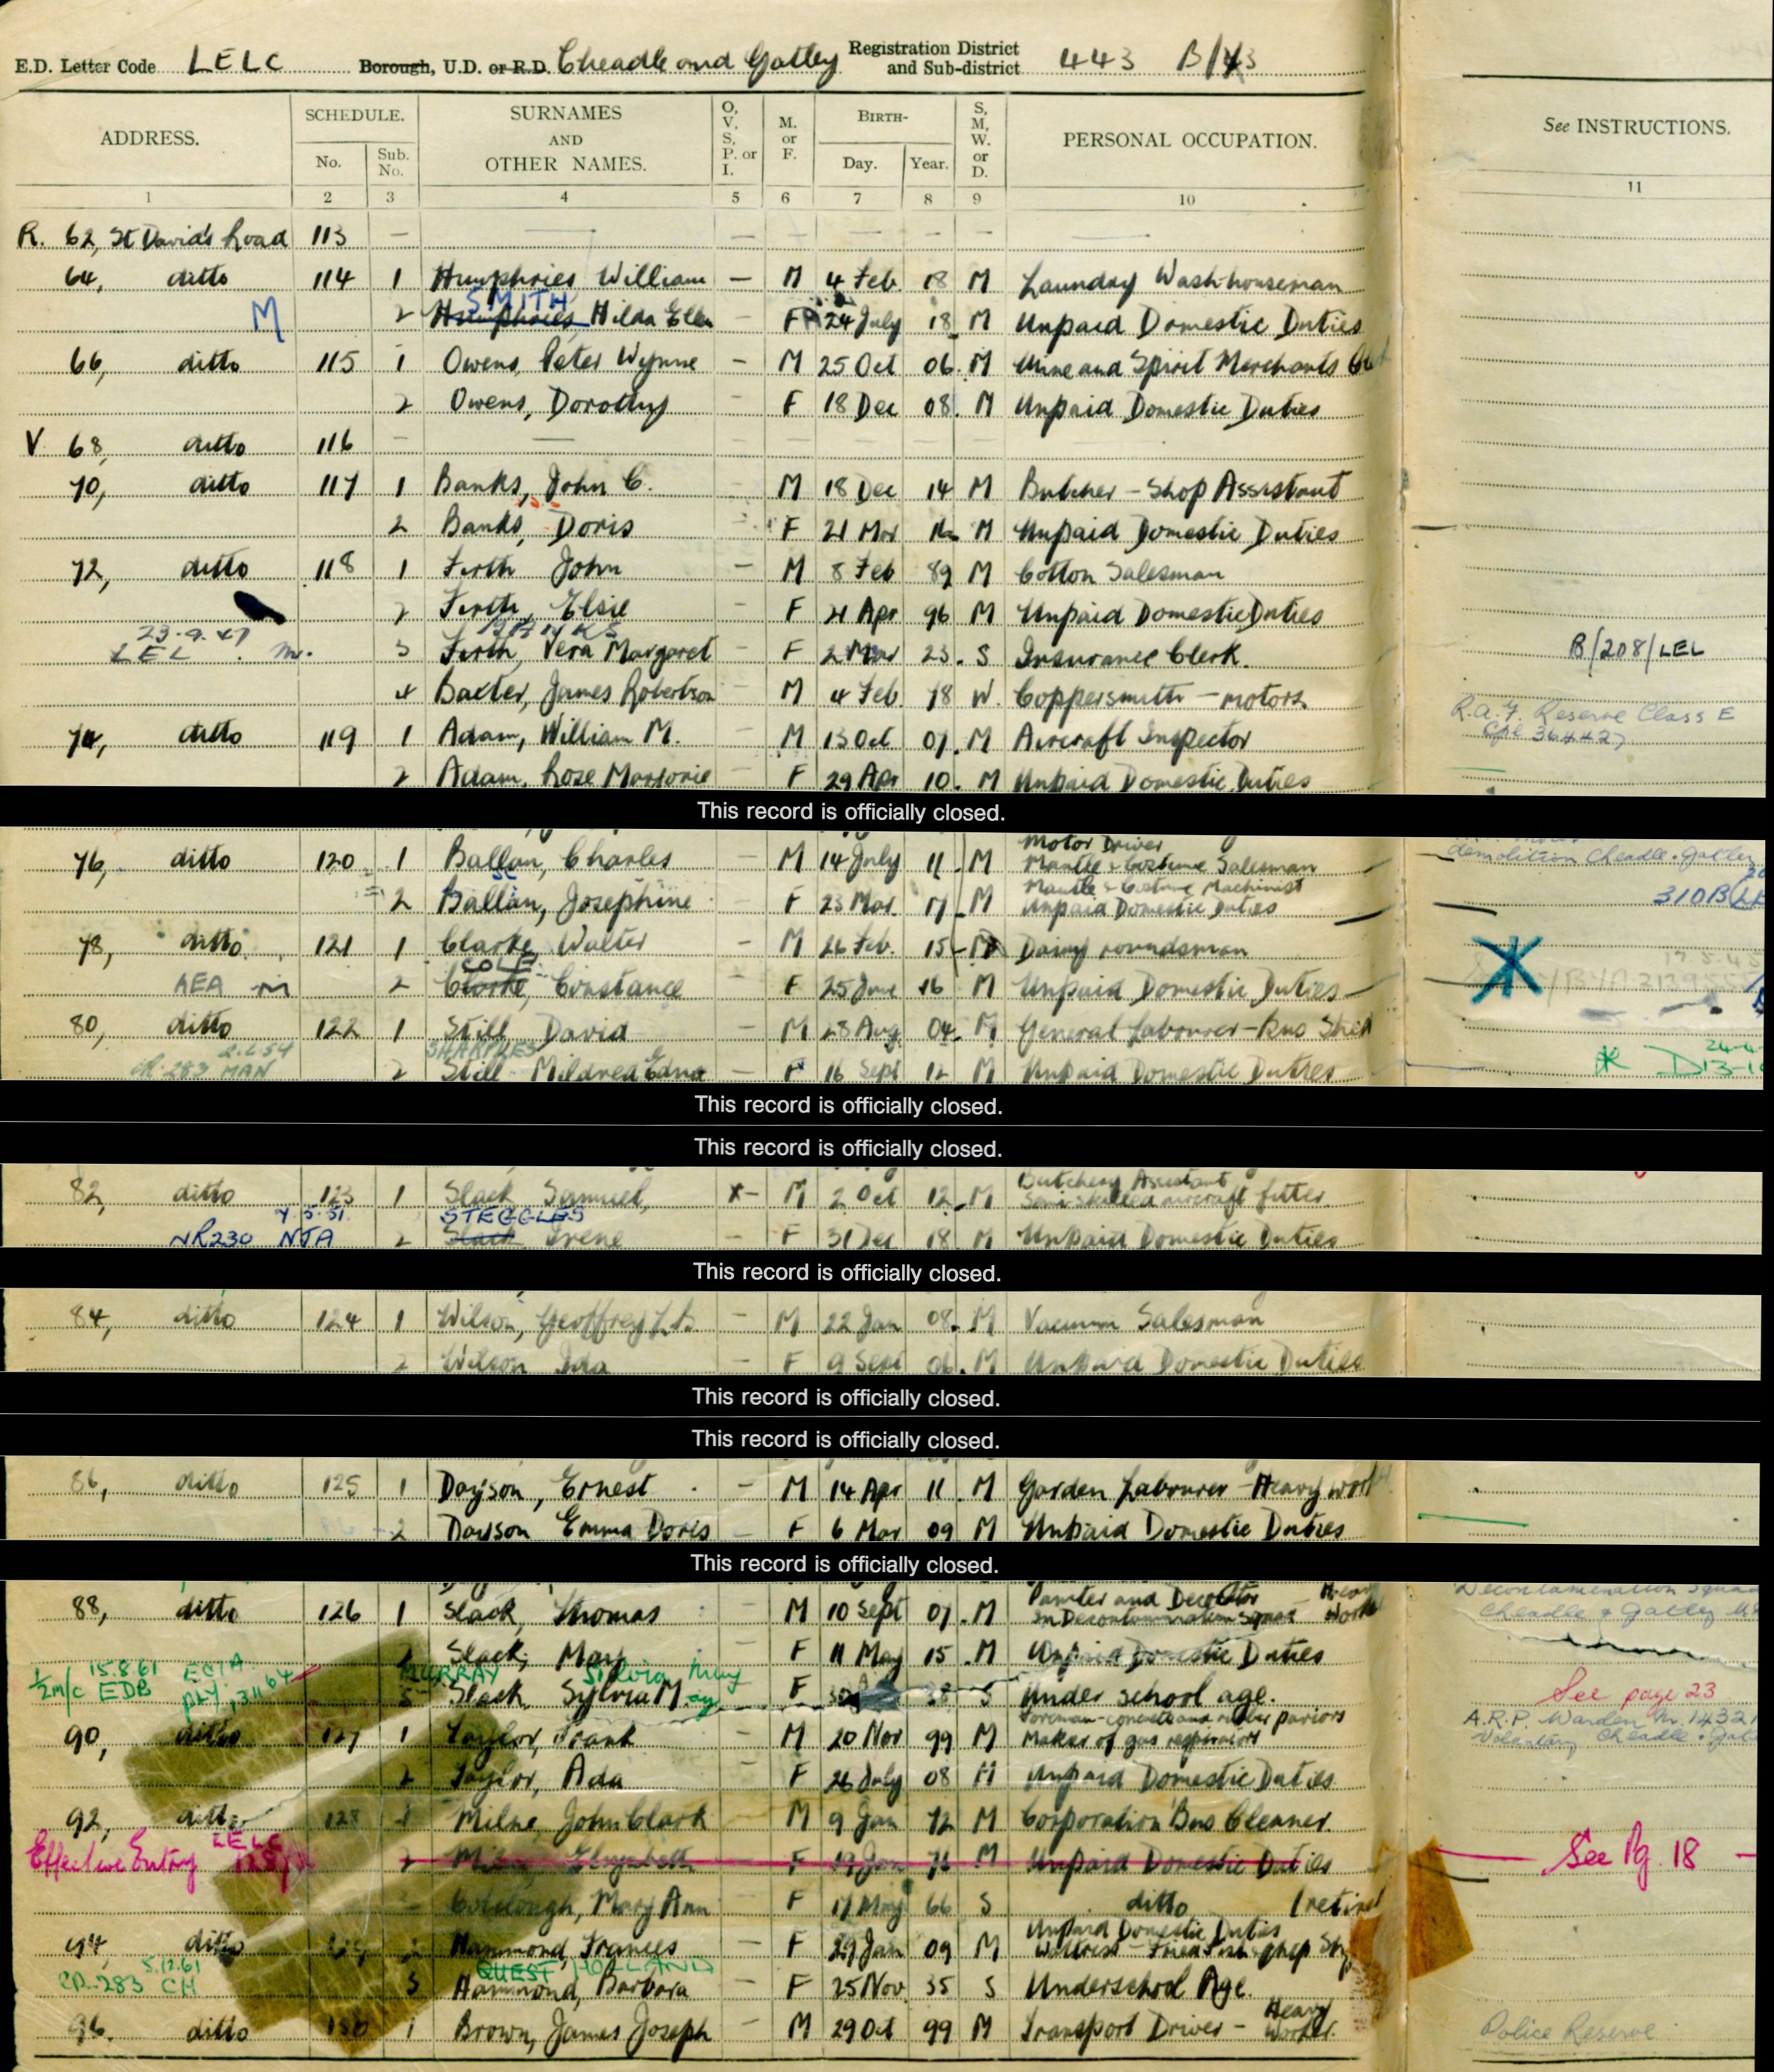 E.D. Letter Code LELC Borough, U.D. or R.D. Cheadle and Gatley Registration District and Sub-district 443 B/43
ADDRESS. SCHEDULE. No. Sub. No. SURNAMES AND OTHER NAMES. O, V, S, P. or I. M. or F. BIRTH- Day. Year. S, M, W. or D. PERSONAL OCCUPATION. See INSTRUCTIONS.
1 2 3 4 5 6 7 8 9 10 11
R. 62, St David's Road 113 — — — — — — —
64, ditto 114 1 Humphries William — M 4 Feb 18 M Laundry Wash-houseman
SMITH
M 2 Humphries Hilda Ellen — F 24 July 18 M Unpaid Domestic Duties
66, ditto 115 1 Owens, Peter Wynne — M 25 Oct 06 M Wine and Spirit Merchants
2 Owens, Dorothy — F 18 Dec 08 M Unpaid Domestic Duties
V 68, ditto 116 — — — — — —
70, ditto 117 1 Banks, John C. M 18 Dec 14 M Butcher — Shop Assistant
2 Banks, Doris F 21 Mar 16 M Unpaid Domestic Duties
72, ditto 118 1 Firth John — M 8 Feb 89 M Cotton Salesman
2 Firth, Elsie — F 21 Apr 96 M Unpaid Domestic Duties
23.9.47 BANKS
LEL m. 3 Firth, Vera Margaret — F 2 Mar 23 S Insurance Clerk. B/208/LEL
4 Baxter, James Robertson — M 4 Feb 78 W. Coppersmith — motors
R.A.F. Reserve Class E
74, ditto 119 1 Adam, William M. — M 13 Oct 07 M Aircraft Inspector Cpl 364427
2 Adam, Rose Marjorie — F 29 Apr 10 M Unpaid Domestic Duties
This record is officially closed.
Motor Driver
76, ditto 120 1 Ballan, Charles — M 14 July 11 M Mantle & Costume Salesman demolition Cheadle & Gatley
Mantle & Costume Machinist
2 Ballan, Josephine F 23 Mar 17 M Unpaid Domestic Duties 310B
78, ditto 121 1 Clarke, Walter — M 26 Feb. 15 M Dairy roundsman
COLE
AEA m 2 Clarke, Constance F 25 June 16 M Unpaid Domestic Duties
80, ditto 122 1 Still, David — M 28 Aug 04 M General Labourer — Bus Shed
2.2.54 SHARPLES
CR 283 MAN 2 Still Mildred Edna — F 16 Sept 12 M Unpaid Domestic Duties
This record is officially closed.
This record is officially closed.
Butchery Assistant
82, ditto 123 1 Slack Samuel, X- M 2 Oct 12 M Semi skilled aircraft fitter
4.5.51 STEGGLES
NR230 NJA 2 Slack Irene — F 31 Dec 18 M Unpaid Domestic Duties
This record is officially closed.
84, ditto 124 1 Wilson, Geoffrey — M 22 Jan 08 M Vacuum Salesman
2 Wilson Ida — F 9 Sept 06 M Unpaid Domestic Duties
This record is officially closed.
This record is officially closed.
86, ditto 125 1 Dayson, Ernest — M 14 Apr 11 M Garden Labourer — Heavy work
2 Dayson Emma Doris — F 6 Mar 09 M Unpaid Domestic Duties
This record is officially closed.
Painter and Decorator — Heavy Decontamination Squad
88, ditto 126 1 Slack, Thomas M 10 Sept 07 M In Decontamination Squad Work Cheadle & Gatley
2 Slack, Mary — F 11 May 15 M Unpaid Domestic Duties
15.8.61 ECIA MURRAY Silvia May
1/2 m/c EDB 3 Slack, Sylvia M. F 30 38 S Under school age. See page 23
Foreman-concrete and rubber paviors A.R.P. Warden
90, ditto 127 1 Taylor, Frank M 20 Nov 99 M Maker of gas respirators Voluntary Cheadle & Gatley
2 Taylor, Ada F 26 July 08 M Unpaid Domestic Duties
92, ditto 128 1 Milne, John Clark — M 9 Jan 72 M Corporation Bus Cleaner.
Effective Entry LELC 2 Milne Elizabeth F 19 Jan 76 M Unpaid Domestic Duties See Pg. 18
Mary Ann F 17 May 66 S ditto (retired
Unpaid Domestic Duties
94, ditto Hammond, Frances — F 29 Jan 09 M Waitress — Fried Fish Shop
5.12.61 QUEST HOLLAND
CR-283 CH 3 Hammond, Barbara F 25 Nov 35 S Underschool Age.
96. ditto 130 1 Brown, James Joseph — M 29 Oct 99 M Transport Driver — Heavy Worker. Police Reserve